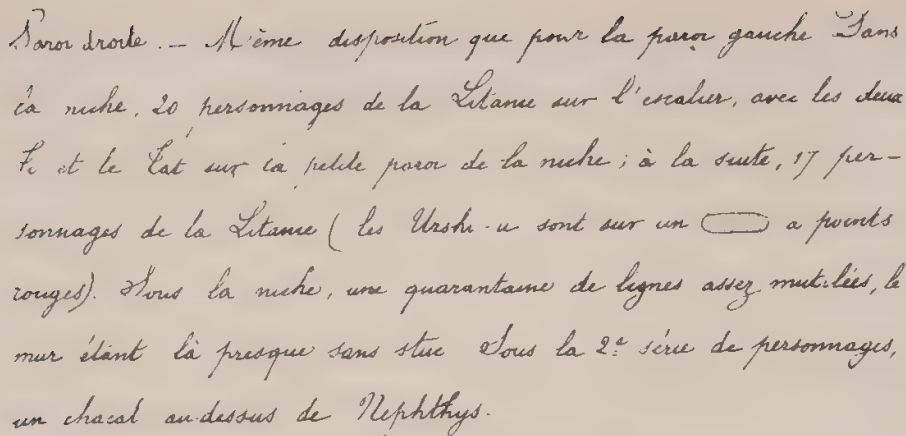 Paroi droite. — Même disposition que pour la paroi gauche Dans
la niche, 20 personnages de la Litanie sur l'escalier, avec les deux
et le Tat sur la petite paroi de la niche ; à la suite, 17 per-
sonnages de la Litanie ( les Urshi-u sont sur un a points
rouges). Sous la niche, une quarantaine de lignes assez mutilées, le
mur étant là presque sans stuc Sous la 2e série de personnages,
un chacal au-dessus de Nephthys.